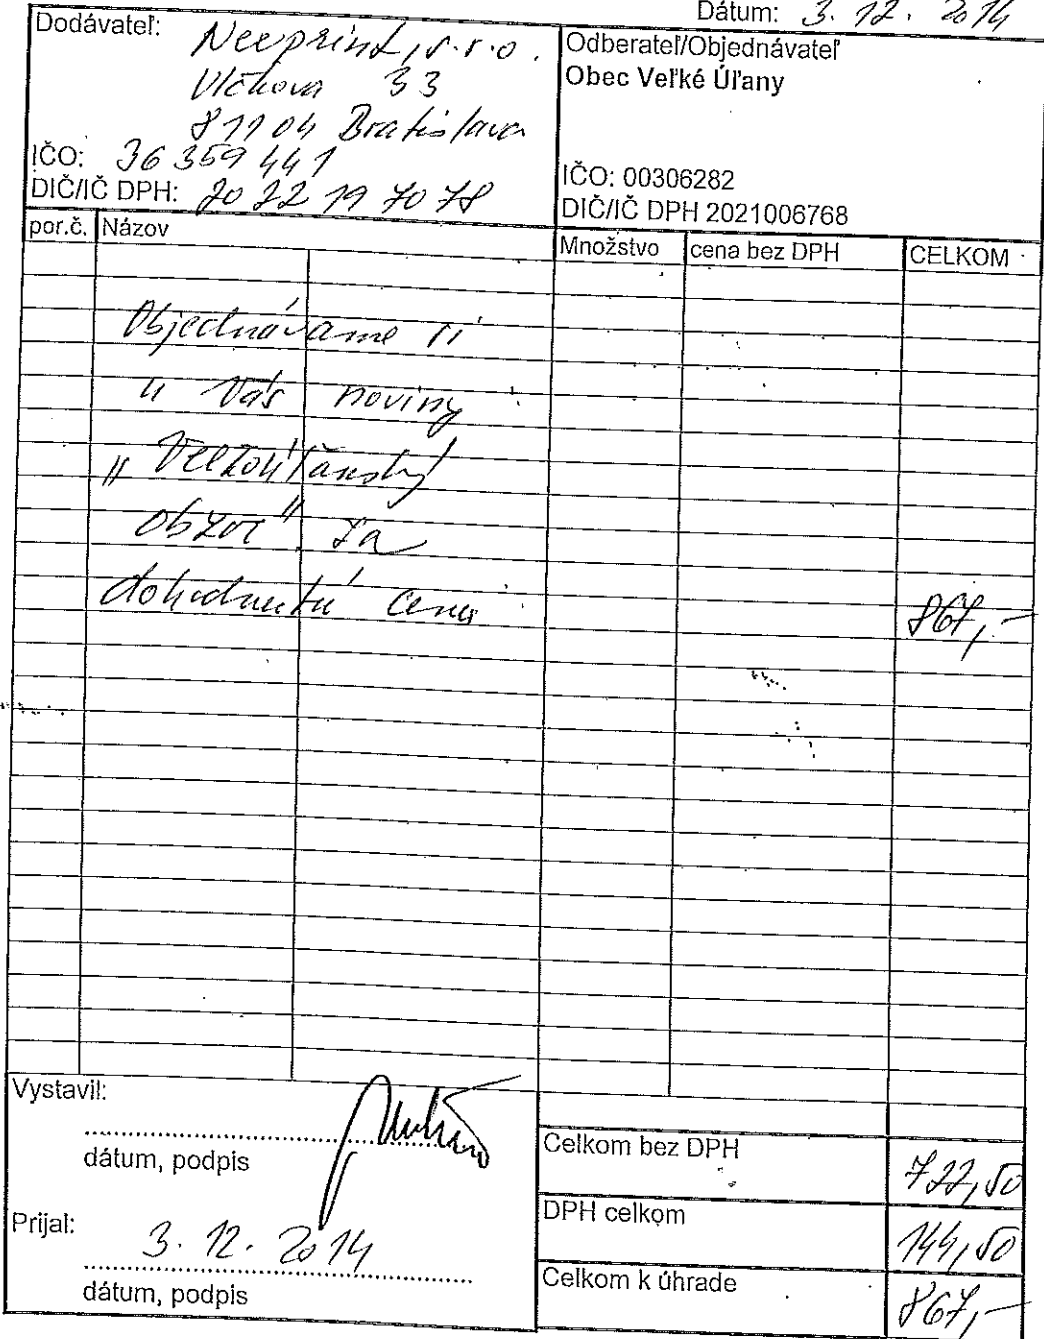 Dátum: 3. 12. 2014
Dodávateľ: Neeprint, s.r.o.
Vlčkova 33
81104 Bratislava
IČO: 36 359 441
DIČ/IČ DPH: 20 22 19 70 78
Odberateľ/Objednávateľ
Obec Veľké Úľany
IČO: 00306282
DIČ/IČ DPH 2021006768
por.č. Názov Množstvo cena bez DPH CELKOM
Objednávame si
u Vás noviny
„Veľkoúľanský
obzor" za
dohodnutú cenu 867,-
Vystavil:
dátum, podpis
Prijal: 3. 12. 2014
dátum, podpis
Celkom bez DPH 722,50
DPH celkom 144,50
Celkom k úhrade 867,-